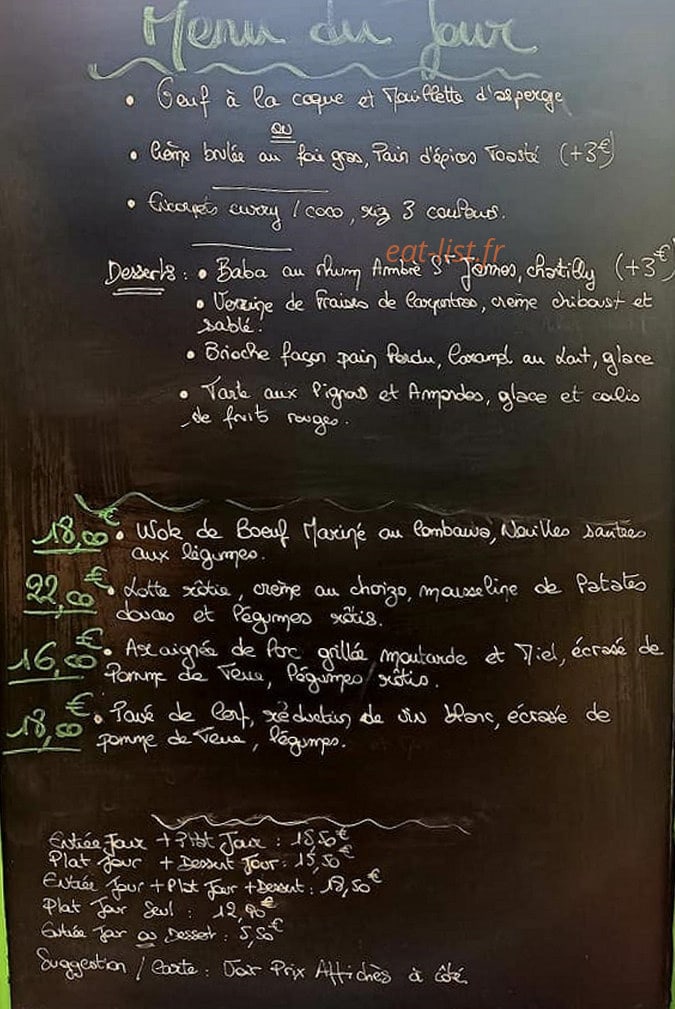 Menu du Jour
• Oeuf à la coque et Mouillette d'asperge
ou
• Crème brulée au foie gras, Pain d'épices Toasté (+3€)
• curry / coco, riz 3 couleurs.
eat-list.fr
Desserts : • Baba au rhum Ambré St James, chantilly (+3€)
• Verrine de Fraises de Carpentras, creme chiboust et
sablé.
• Brioche façon pain Perdu, Caramel au Lait, glace
• Tarte aux Pignons et Amandes, glace et coulis
de fruits rouges.
18,00€ • Wok de Boeuf Mariné au Combawa, Nouilles sautées
aux légumes.
22,00€ • Lotte rôtie, crème au chorizo, mousseline de Patates
douces et légumes rôtis.
16,00€ • Araignée de Porc grillée moutarde et Miel, écrasé de
Pomme de Terre, légumes rôtis.
18,00€ • Pavé de Cerf, réduction de vin blanc, écrasé de
pomme de Terre, légumes.
Entrée Jour + Plat Jour : 15,50€
Plat Jour + Dessert Jour : 15,50€
Entrée Jour + Plat Jour + Dessert : 19,50€
Plat Jour Seul : 12,90€
Entrée Jour ou Dessert : 5,50€
Suggestion / Carte : Voir Prix Affichés à côté